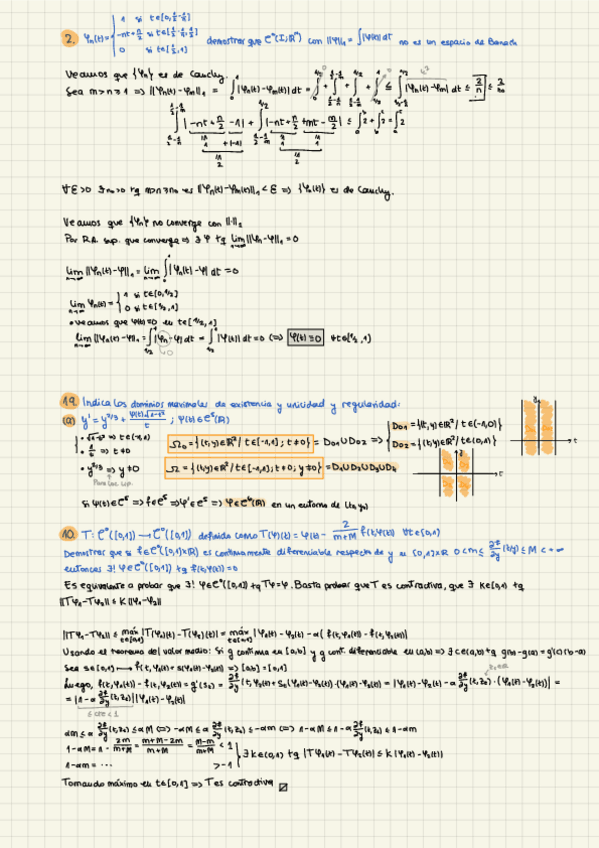 2. φn(t) = { 1 si t∈[0, 1/2 - 1/n]
-nt + n/2 si t∈[1/2 - 1/n, 1/2]
0 si t∈[1/2, 1]
demostrar que C⁰(I; Rⁿ) con ||φ||₁ = ∫|φ(t)| dt no es un espacio de Banach
Veamos que {φn} es de Cauchy.
Sea m > n ≥ 1 => ||φn - φm||₁ = ∫|φn(t) - φm(t)| dt =
∀ε>0 ∃n₀>0 tq m>n≥n₀ es ||φn(t) - φm(t)||₁ < ε => {φn(t)} es de Cauchy.
Veamos que {φn} no converge con ||·||₁
Por R.A. sup. que converge => ∃ φ tq lim ||φn - φ||₁ = 0
lim ||φn(t) - φ||₁ = lim ∫|φn(t) - φ| dt = 0
lim φn(t) = { 1 si t∈[0, 1/2)
0 si t∈[1/2, 1]
• veamos que φ(t)=0 en t∈[1/2, 1]
lim ||φn(t) - φ||₁ = ∫|φn - φ| dt = ∫|φ(t)| dt = 0 <=> φ(t) ≡ 0 ∀t∈[1/2, 1]
19. Indica los dominios maximales de existencia y unicidad y regularidad:
(a) y' = y^2/3 + φ(t)√1-t² / t ; φ(t)∈C⁵(R)
• √1-t² => t∈(-1,1)
• 1/t => t≠0
• y^2/3 => y≠0
Para Loc. Lip.
Ω₀ = {(t,y)∈R² / t∈[-1,1]; t≠0} = D₀₁ ∪ D₀₂ => { D₀₁ = {(t,y)∈R² / t∈(-1,0)}
D₀₂ = {(t,y)∈R² / t∈(0,1)}
Ω = {(t,y)∈R² / t∈[-1,1]; t≠0, y≠0} = D₁∪D₂∪D₃∪D₄
si φ(t)∈C⁵ => f∈C⁵ => φ'∈C⁵ => φ∈C⁶(R) en un entorno de
10. T: C⁰([0,1]) → C⁰([0,1]) definida como T(φ)(t) = φ(t) - 2/(m+M) f(t, φ(t)) ∀t∈[0,1]
Demostrar que si f∈C⁰([0,1]×R) es continuamente diferenciable respecto de y en [0,1]×R 0 < m ≤ ∂f/∂y (t,y) ≤ M < +∞
entonces ∃! φ∈C⁰([0,1]) tq f(t, φ(t)) = 0
Es equivalente a probar que ∃! φ∈C⁰([0,1]) tq Tφ = φ. Basta probar que T es contractiva, que ∃ k∈(0,1) tq
||Tφ₁ - Tφ₂|| ≤ k ||φ₁ - φ₂||
|Tφ₁ - Tφ₂| ≤ máx |T(φ₁)(t) - T(φ₂)(t)| = máx |φ₁(t) - φ₂(t) - α(f(t, φ₁(t)) - f(t, φ₂(t)))|
Usando el teorema del valor medio: Si g continua en [a,b] y g cont. diferenciable en (a,b) => ∃ c∈(a,b) tq g(b) - g(a) = g'(c)(b-a)
Sea s∈[0,1] → f(t, φ₂(t) + s(φ₁(t) - φ₂(t))) => [a,b] = [0,1]
Luego, f(t, φ₁(t)) - f(t, φ₂(t)) = g'(s₀) = ∂f/∂y (t, φ₂(t) + s₀(φ₁(t) - φ₂(t)))·(φ₁(t) - φ₂(t)) = |φ₁(t) - φ₂(t) - α ∂f/∂y (t, z₀)·(φ₁(t) - φ₂(t))| =
= |1 - α ∂f/∂y (t, z₀)| |φ₁(t) - φ₂(t)|
αm ≤ α ∂f/∂y (t, z₀) ≤ αM <=> -αM ≤ -α ∂f/∂y (t, z₀) ≤ -αm <=> 1-αM ≤ 1-α ∂f/∂y (t, z₀) ≤ 1-αm
1-αM = 1 - 2M/(m+M) = (m+M-2M)/(m+M) = < 1
1-αm = ··· > -1
∃ k∈(0,1) tq |Tφ₁(t) - Tφ₂(t)| ≤ k |φ₁(t) - φ₂(t)|
Tomando máximo en t∈[0,1] => T es contractiva